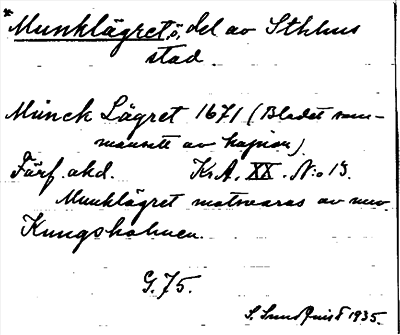 *Munklägret, del av Sthlms
stad.
Münck Lägret 1671 (Bladet sam-
mansatt av kopior)
Förf. okd. Kr.A. XX. N:o 13.
Munklägret motsvaras av nuv.
Kungsholmen.
G. 75.
S. Sundquist 1935.